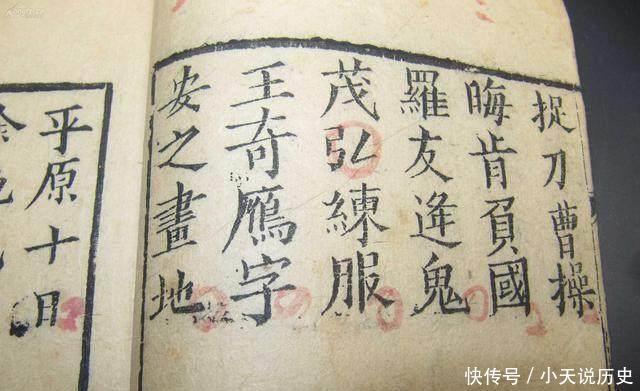 捉刀曹操
晦肯負國
羅友逢鬼
茂弘練服
王奇鴈字
安之畫地
平原十日
快传号／小天说历史